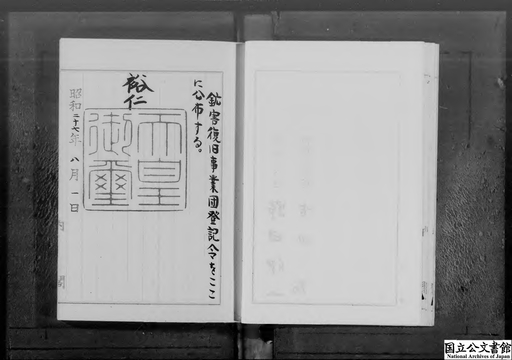 鉱害復旧事業団登記令をここ
に公布する。
裕仁
天皇
御璽
昭和二十七年 八月 一日
内閣
国立公文書館
National Archives of Japan